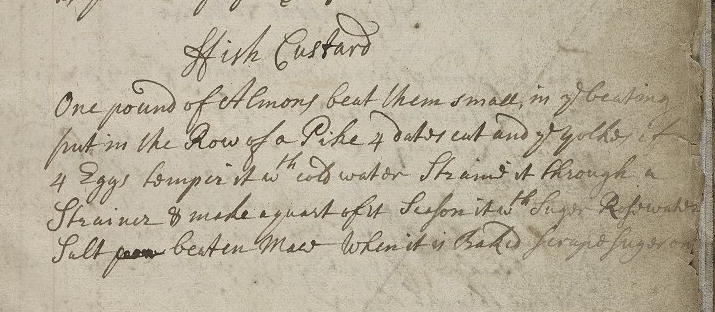 ffish Custard
One pound of Almons beat them small, in ye beating
put in the Row of a Pike 4 dates cut and ye yolkes of
4 Eggs temper it wth cold water Straine it through a
Strainer & make a quart of it Season it wth Suger Rosewater
Salt beaten Mace When it is Baked scrape Suger on